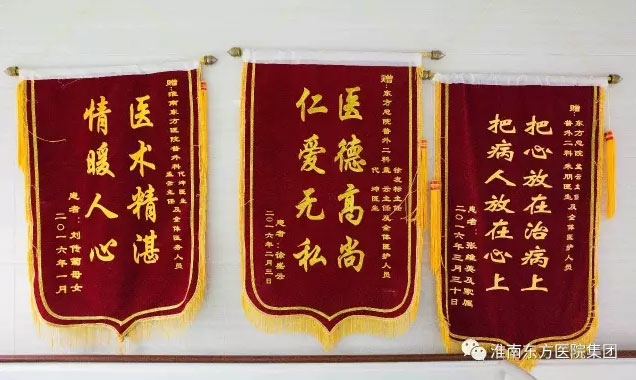 赠:淮南东方医院普外科
孟云主任
代坤医生及全体医务人员
医术精湛
情暖人心
患者:刘传菊母女
二〇一六年一月
赠:东方总院普外二科孟云主任及全体医护人员
代坤医生
医德高尚
仁爱无私
二〇一六年二月三日
赠 东方总院
普外二科
孟云主任
朱朋医生及全体医护人员
把心放在治病上
把病人放在心上
患者:张维英及家属
二〇一六年三月三十日
淮南东方医院集团